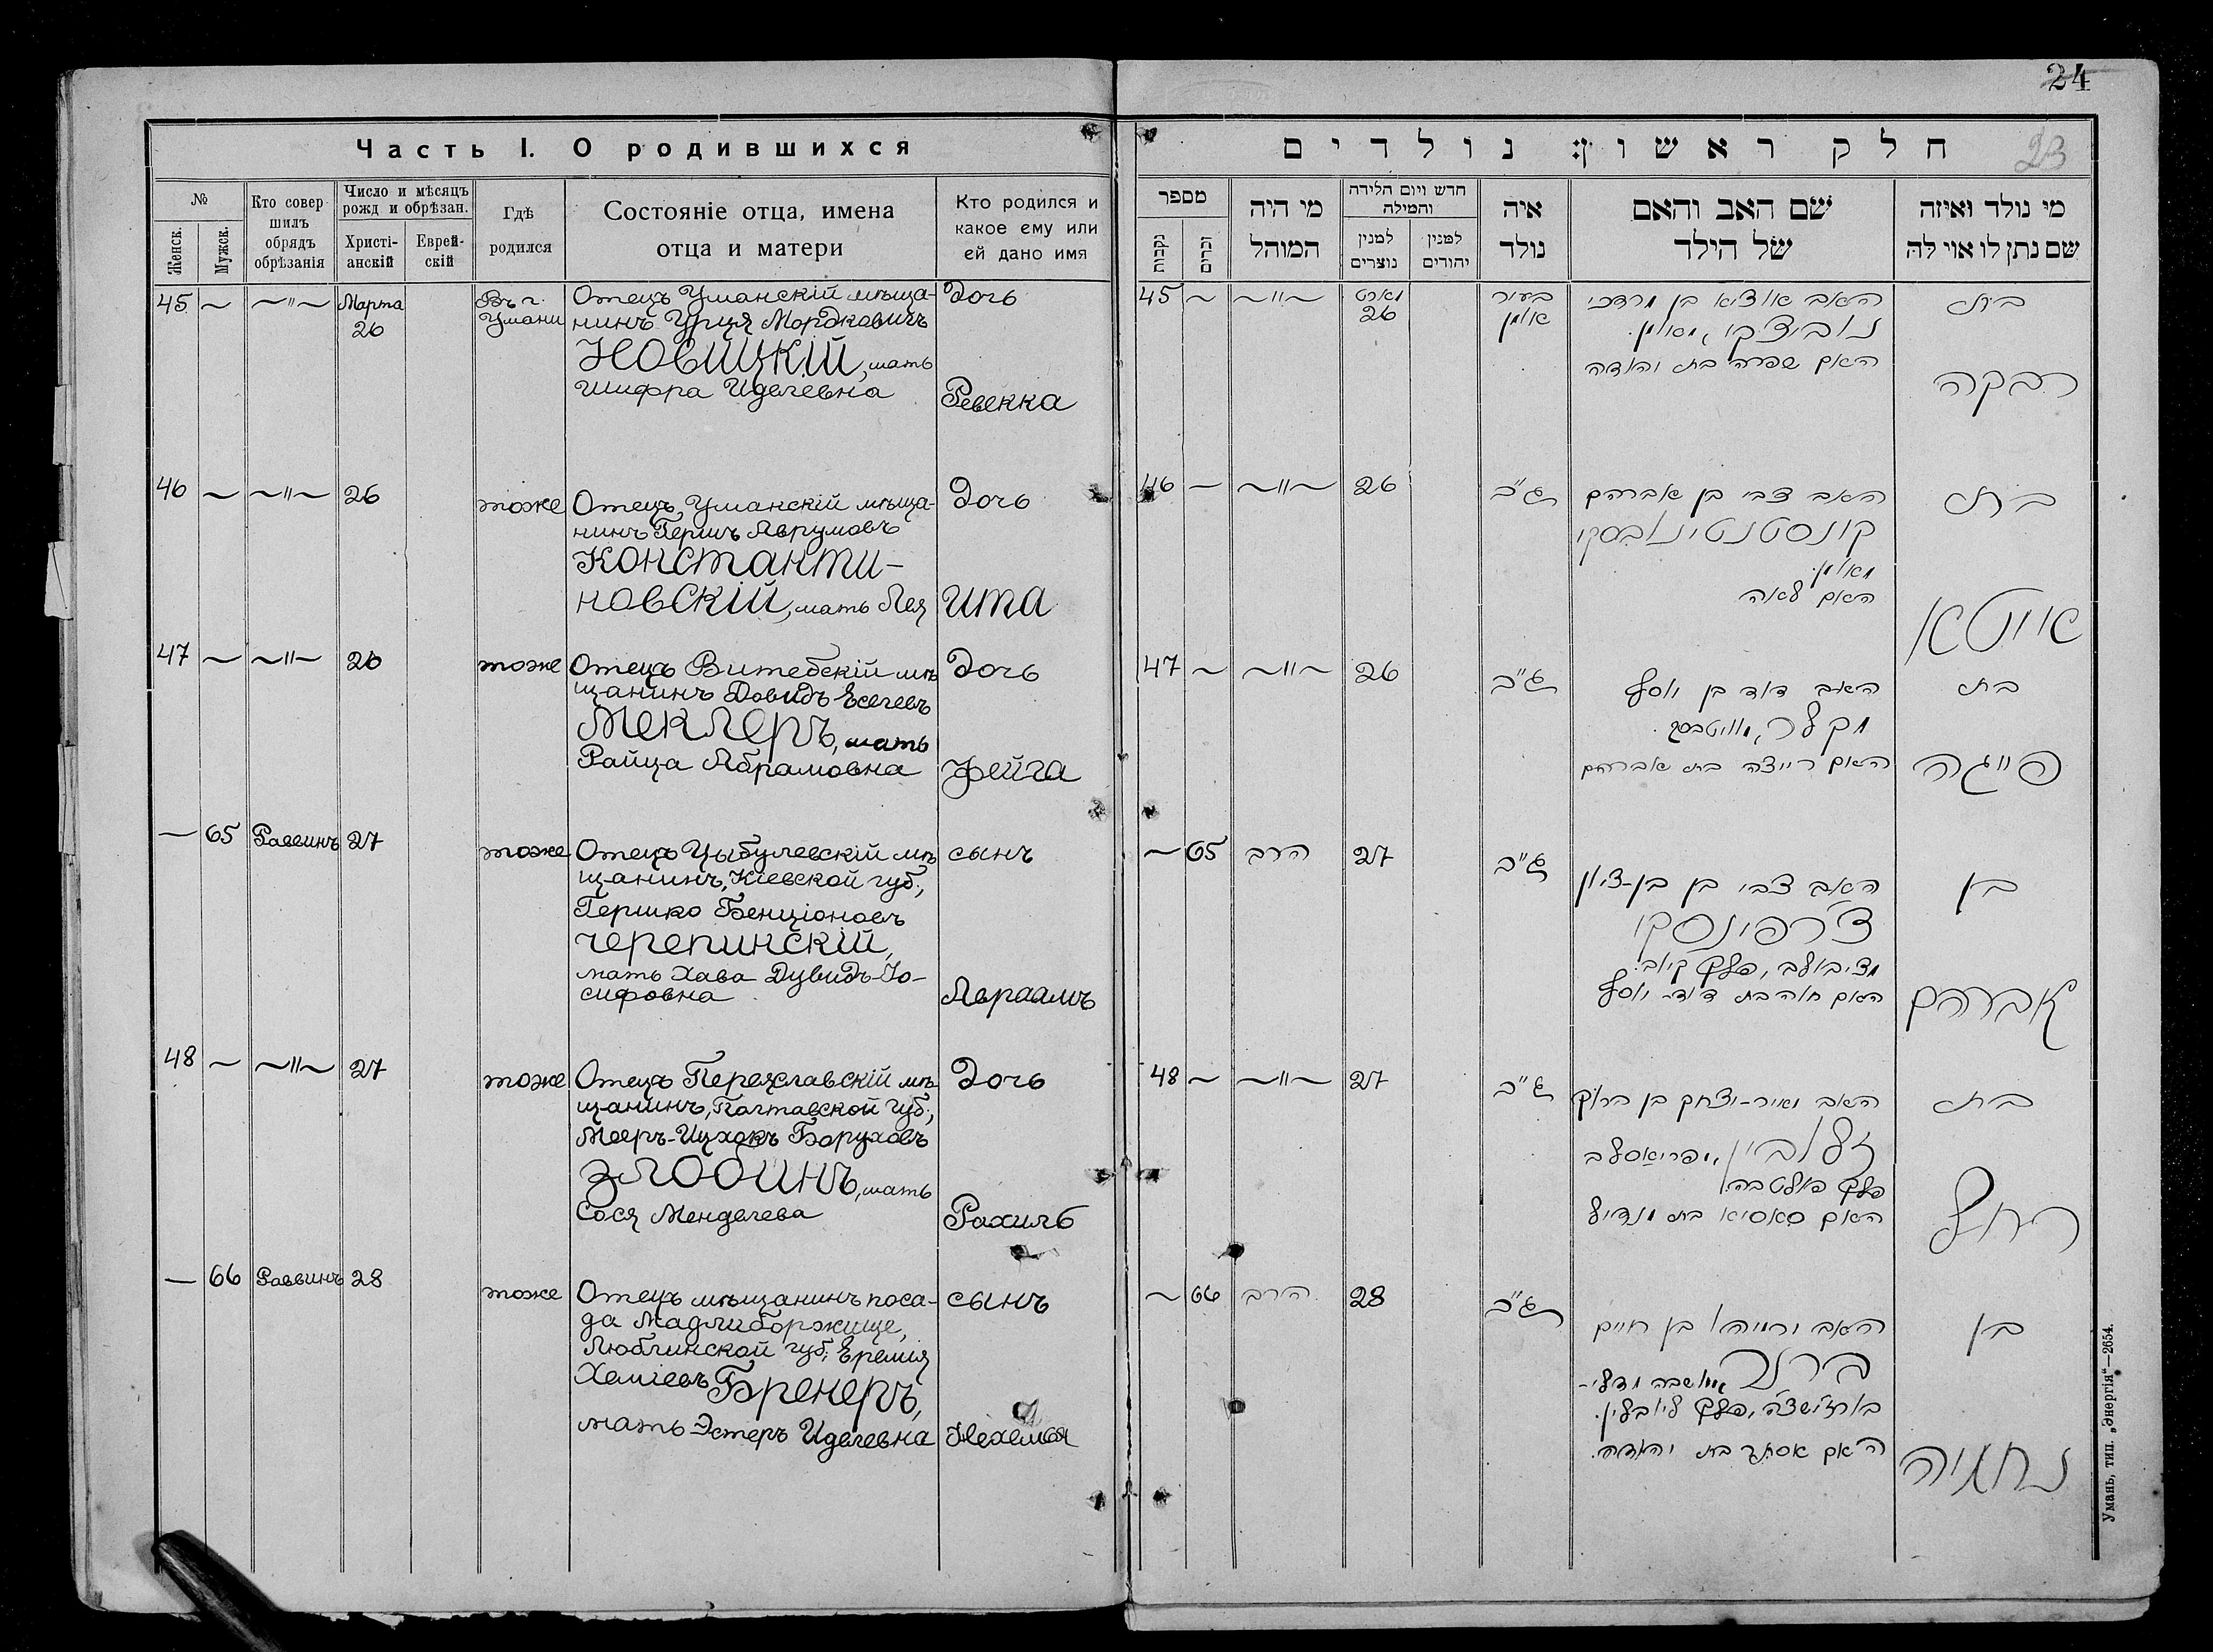 24
23
Часть I. О родившихся
№
Женск.
Мужск.
Кто совер
шилъ
обрядъ
обрѣзанія
Число и мѣсяцъ
рожд и обрѣзан.
Христі-
анскій
Еврей-
скій
Гдѣ
родился
Состояніе отца, имена
отца и матери
Кто родился и
какое ему или
ей дано имя
45 ~ ~"~ Марта
26
Въ г.
Умани
Отецъ Уманскій мѣща-
нинъ Урця Мордковичъ
Новицкій, мать
Шифра Иделевна
Дочь
Ревекка
46 ~ ~"~ 26 тоже
Отецъ, Уманскій мѣща-
нинъ Гершъ Аврумовъ
Константи-
новскій, мать Лея
Дочь
Ита
47 ~ ~"~ 26 тоже
Отецъ Витебскій мѣ
щанинъ Довидъ Еселевъ
Меклеръ, мать
Райца Абрамовна
Дочь
Фейга
— 65 Раввинъ 27 тоже
Отецъ Цыбулевскій мѣ
щанинъ, Кіевской губ.,
Гершко Бенціоновъ
Черепинскій,
мать Хава Дувидъ-Іо-
сифовна
сынъ
Авраамъ
48 ~ ~"~ 27 тоже
Отецъ Переяславскій мѣ-
щанинъ, Полтавской губ.,
Мееръ-Ицхокъ Боруховъ
Злобинъ, мать
Сося Менделева
Дочь
Рахиль
— 66 Раввинъ 28 тоже
Отецъ мѣщанинъ поса-
да Мадлиборжице,
Люблинской губ., Еремія
Хаміевъ Бренеръ,
мать Эстеръ Иделевна
сынъ
Нехемія
חלק ראשון: נולדים
מספר
נקבות
זכרים
מי היה
המוהל
חדש ויום הלידה
והמילה
למנין
נוצרים
למנין
יהודים
איה
נולד
שם האב והאם
של הילד
מי נולד ואיזה
שם נתן לו או לה
45 ~ ~"~ מארט
26
בעיר
אומן
האב אורציא בן מרדכי
נוביצקי, מאומן.
האם שפרה בת יהודה
בת
רבקה
46 — ~"~ 26
האב צבי בן אברהם
קונסטנטינובסקי
מאומן.
האם לאה
בת
אייטא
47 ~ ~"~ 26
האב דוד בן יוסף
מקלר, מוויטבסק.
האם רייצה בת אברהם
בת
פייגה
~ 65 הרב 27
האב צבי בן בן-ציון
צ'רפינסקי
מציבולב, פלך קיוב.
האם חוה בת דוד-יוסף
בן
אברהם
48 ~ ~"~ 27
האב מאיר-יצחק בן ברוך
זלובין, מפריאסלב
פלך פולטבה.
האם סאסיא בת מנדיל
בת
רחל
~ 66 הרב 28
האב ירמיהו בן חיים
ברנר
פלך ליובלין.
האם אסתר בת יהודה.
בן
נחמיה
Умань, тип. „Энергія“—2654.